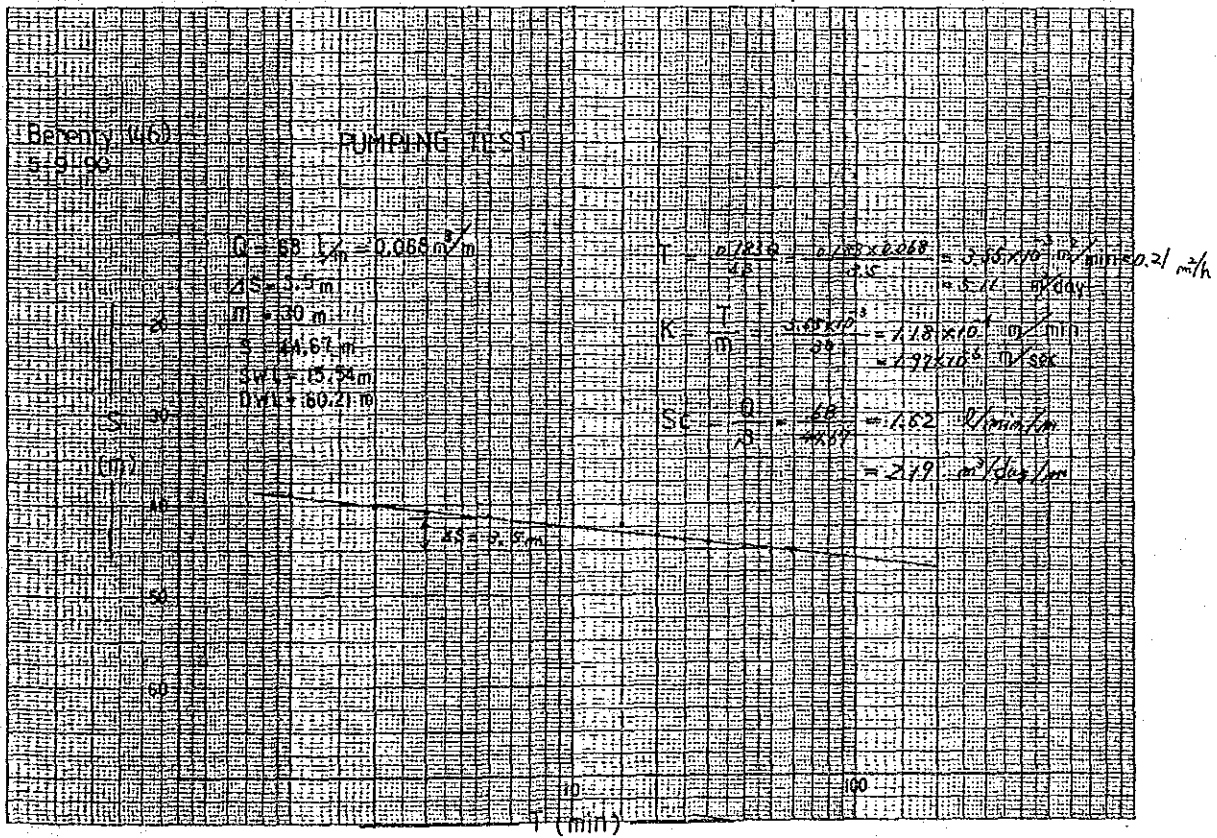 Berenty (46)
5-9-90
PUMPING TEST
Q = 68 l/m = 0.068 m³/m
ΔS = 3.5 m
m = 30 m
S = 44.67 m
SWL = 15.54 m
DWL = 60.21 m
T = 0.183Q/ΔS = 0.183 × 0.068/3.5 = 3.55×10⁻³ m²/min = 0.21 m²/h
= 5.11 m²/day
K = T/m = 3.55×10⁻³/30 = 1.18×10⁻⁴ m/min
= 1.97×10⁻⁶ m/sec
Sc = Q/S = 68/44.67 = 1.52 l/min/m
= 2.19 m³/day/m
20
30
S
(m)
40
ΔS = 3.5 m
50
60
10
100
T (min)